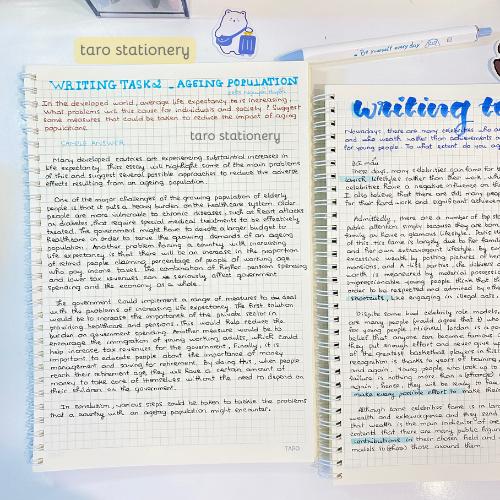 taro stationery
Be yourself every day
WRITING TASK 2 _ AGEING POPULATION
In the developed world, average life expectancy is increasing.
What problems will this cause for individuals and society? Suggest
some measures that could be taken to reduce the impact of ageing
populations.
taro stationery
SAMPLE ANSWER
Many developed countries are experiencing substantial increases in
life expectancy. This essay will highlight some of the main problems
of this and suggest several possible approaches to reduce the adverse
effects resulting from an ageing population.
One of the major challenges of the growing population of elderly
people is that it puts a heavy burden on the healthcare system. Older
people are more vulnerable to chronic diseases, such as heart attacks
or diabetes, that require special medical treatments to be effectively
treated. The government might have to devote a larger budget to
healthcare in order to serve the growing demands of an ageing
population. Another problem facing a country with increasing
life expectancy is that there will be an increase in the proportion
of retired people claiming percentage of people of working age
who pay income taxes. The combination of higher pension spending
and lower tax revenues can seriously affect government
spending and the economy as a whole.
The government could implement a range of measures to deal
with the problems of increasing life expectancy. The first solution
would be to increase the importance of the private sector in
providing healthcare and pensions. This would help reduce the
burden on government spending. Another measure would be to
encourage the immigration of young working adults, which could
help increase tax revenues for the government. Finally, it is
important to educate people about the importance of money
management and saving for retirement. By doing this, when people
reach their retirement age they will have a certain amount of
money to take care of themselves without the need to depend on
their children or the government.
In conclusion, various steps could be taken to tackle the problems
that a country with an ageing population might encounter.
TARO
writing t
Nowadays, there are many celebrities who are
for young people. To what extent do you ag
Bài mẫu
These days, many celebrities gain fame for t
lavish lifestyles rather than their work, wh
celebrities have a negative influence on th
I also believe that there are still many peop
for their hard work and significant achievem
Admittedly, there are a number of top st
public attention simply because they are born
family and have glamorous lifestyle. Paris H
of this. Her fame is largely due to her famil
and her own extravagant lifestyle. By co
excessive wealth by posting pictures of her
mansions, and A list parties, she delivers a
worth is measured by material possessio
impressionable young people think that in
order to be respected and admired by othe
shortcuts, like engaging in illegal acts
Despite some bad celebrity role models,
are many people (would agree that is) who
for young people. Michael Jordan is a po
belief that anyone can become famous i
they put enough effort and never give up
of the greatest basketball players in ful
recognition is thanks to years of training
and again. Young people who look up to
failure is nothing more than a (chance) o
again; hence, they will be ready to face
make every possible effort to make their
Although some celebrities' fame is in lar
wealth and extravagance and they send
that wealth is the main indicator of one
contend that there are many famous in
contributions in their chosen field and
models to those around them.